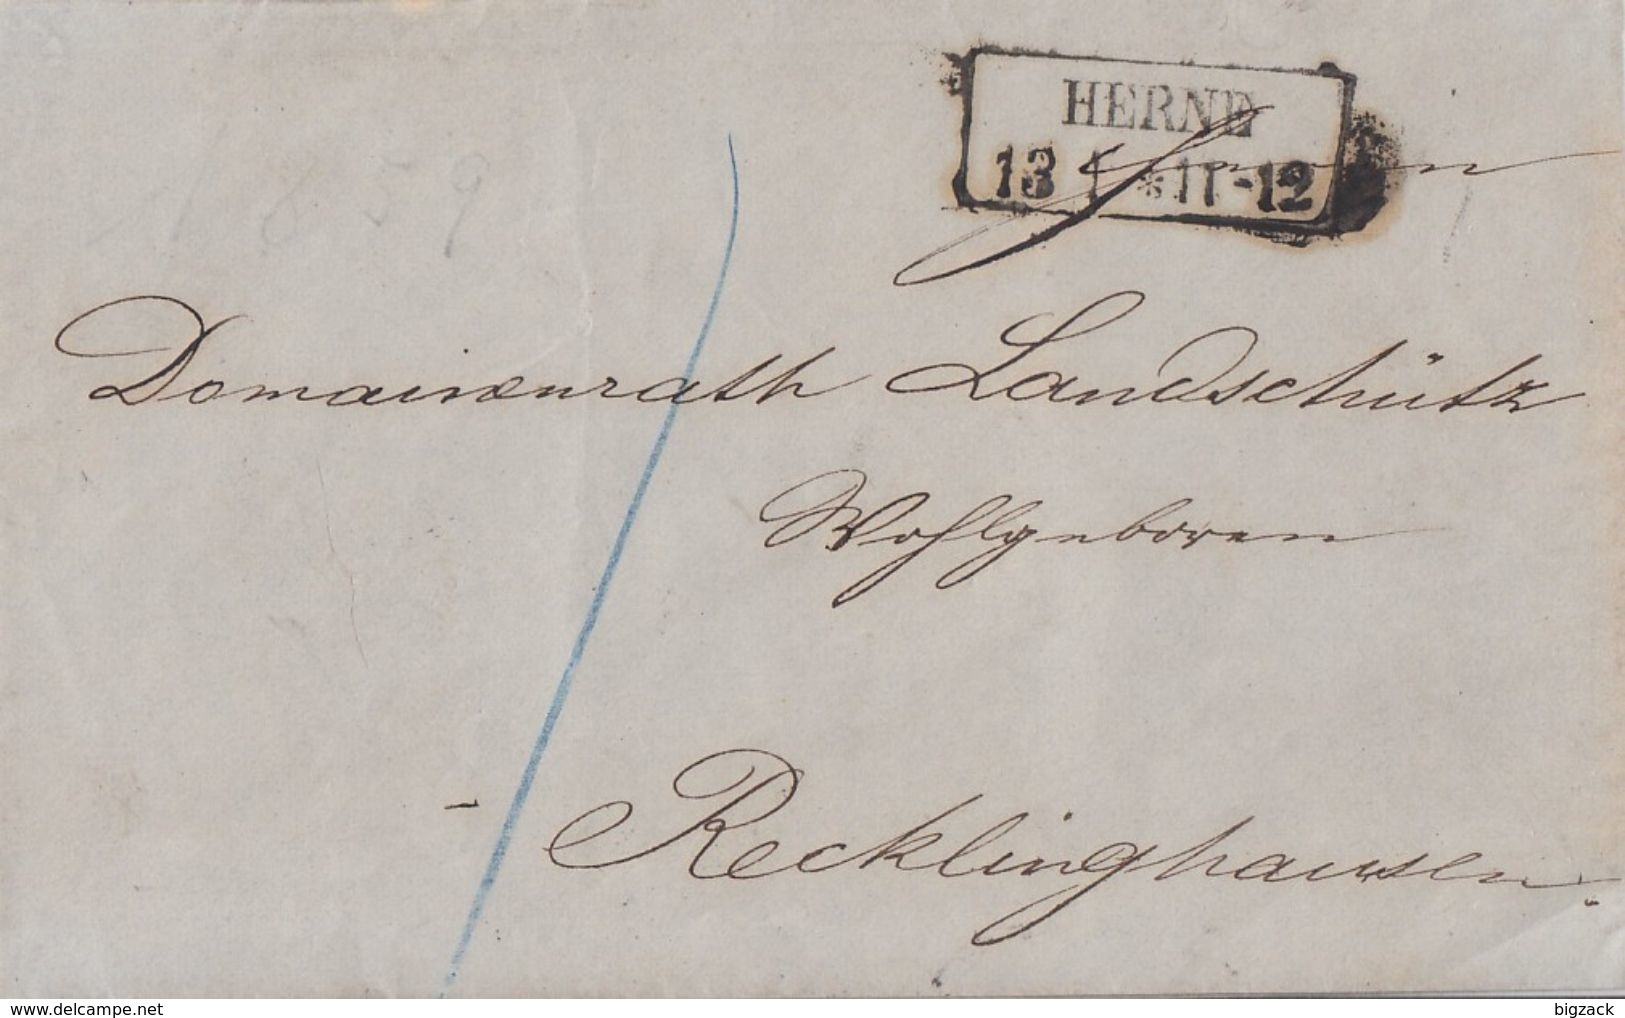 HERNE
13 1 * 11-12
1859
Domainenrath Landschütz
Wohlgeboren
Recklinghausen
delcampe.net
bigzack